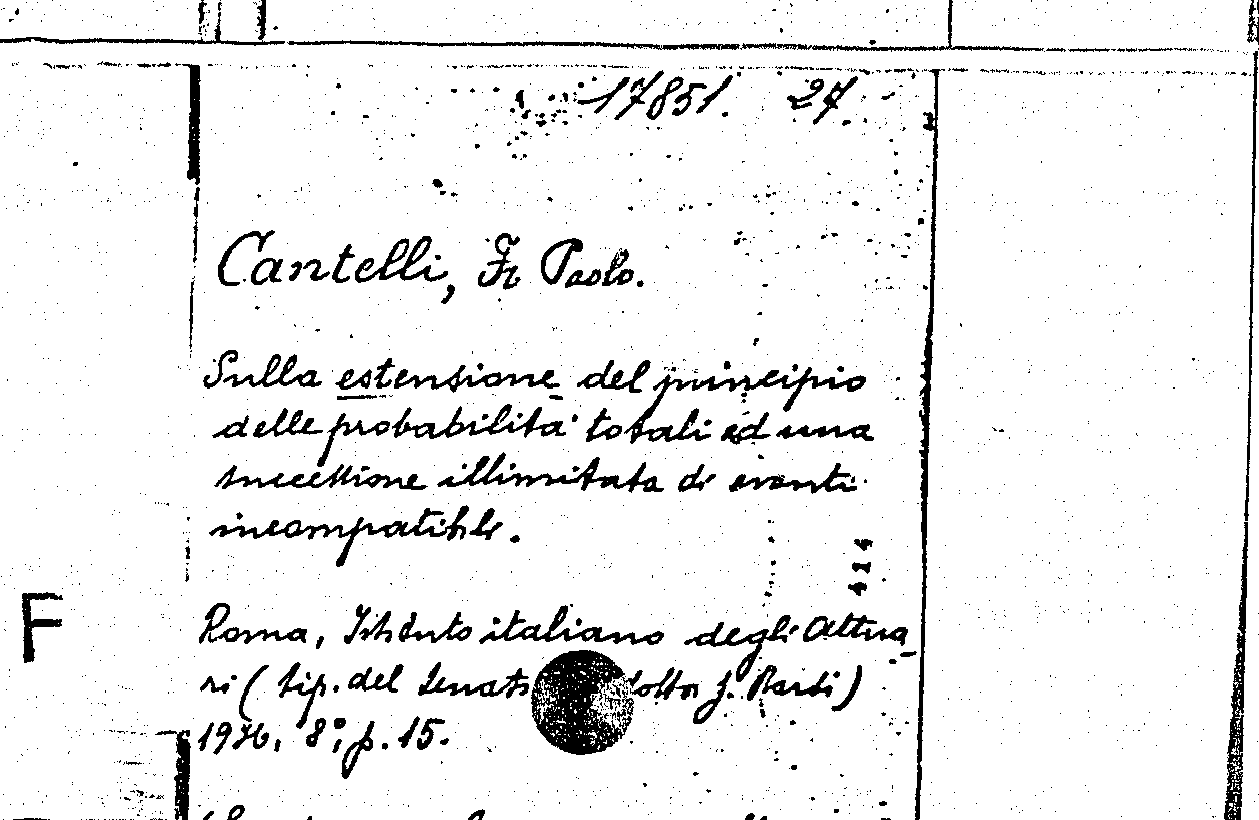 17851. 27.
Cantelli, Fr Paolo.
Sulla estensione del principio
delle probabilità totali ad una
successione illimitata di eventi
incompatibili.
414
Roma, Istituto italiano degli Attua_
F
ri ( tip. del Senato dottor G. Bardi)
8°, p. 15.